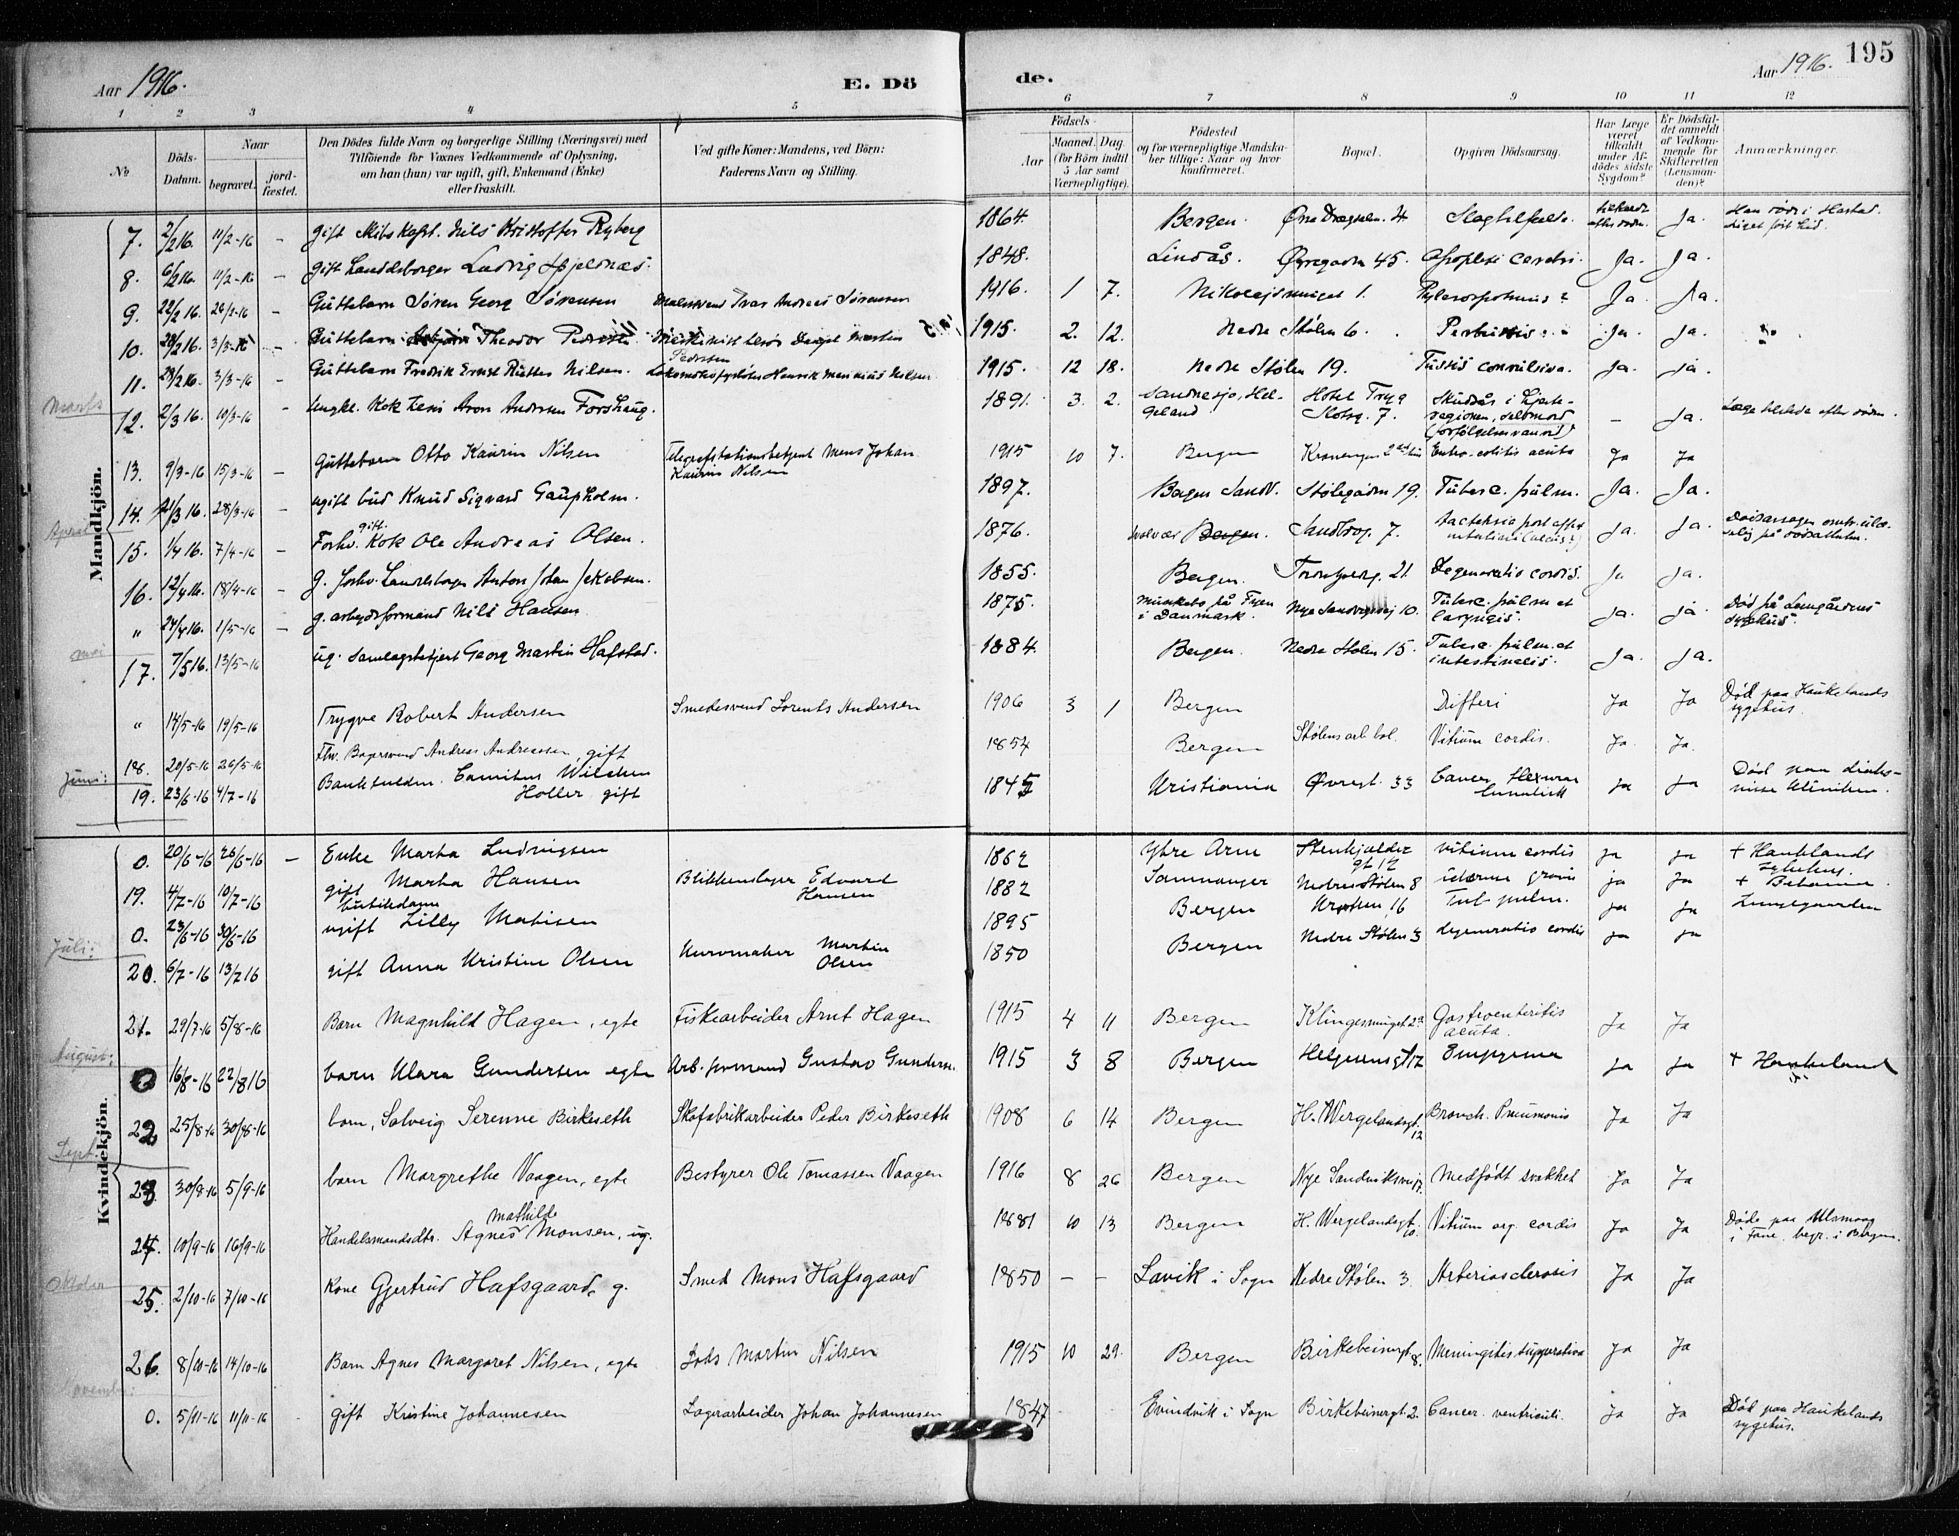 Aar 1916.
E. Döde.
Aar 1916. 195
1 2 3 4 5 6 7 8 9 10 11 12
No
Döds-Datum.
Naar
begravet.
jord-fæstet.
Den Dödes fulde Navn og borgerlige Stilling (Næringsvei) med
Tilföiende for Voxnes Vedkommende af Oplysning,
om han (hun) var ugift, gift, Enkemand (Enke)
eller fraskilt.
Ved gifte Koner: Mandens, ved Börn:
Faderens Navn og Stilling.
Födsels-
Aar
Maaned. Dag.
(for Börn indtil
5 Aar samt
Værnepligtige).
Födested
og for værnepligtige Mandska-
ber tillige: Naar og hvor
konfirmeret.
Bopæl.
Opgiven Dödsaarsag.
Har Læge
været
tilkaldt
under Af-
dödes sidste
Sygdom?
Er Dödsfal-
det anmeldt
af Vedkom-
mende for
Skifteretten
(Lensman-
den)?
Anmærkninger.
Mandkjön.
7. 2/2 16. 11/2-16 – gift Skibskapt. Nils Kristoffer Ryberg 1864. Bergen. Øvre Dregsalm. 4 Slagtilfælde. Ja. Han døde i Harstad.
8. 6/2 16. 11/2-16 – gift Handelsborger Ludvig Hjeldnæs. 1848. Lindås. Øvregaden 45. Apoplexi cerebri. Ja. Ja.
9. 22/2 16. 26/2-16 – Guttebarn Søren Georg Sørensen Malersvend Ivar Andreas Sørensen 1916. 1 7. Nikolaismuget 1. Ja. Ja.
10. 3/3-16 – Guttebarn Theodor Pedersen Martin Pedersen 1915. 2. 12. Nedre Stølen 6. Ja. Ja.
11. 28/2 16. 3/3-16 – Guttebarn Fredrik Ernst Rutter Nilsen. Lokomotivfyrbøter Henrik Menkius Nilsen 1915. 12 18. Nedre Stølen 19. Tussis convulsiva. Ja. Ja.
Marts
12. 2/3 16. 10/3-16 – Ungk. Kok Aron Andersen Forshaug. 1891. 3. 2. Sandnessjø, Helgeland Hotel Tryg Slotsg. 7. Skudsår i Hjerteregionen, selvmord – Ja. Læge tilkaldt efter døden.
13. 9/3-16 15/3-16 – Guttebarn Otto Kaurin Nilsen Telegrafstationsbetjent Mons Johan Kaurin Nilsen 1915 10 7. Bergen Entero-colitis acuta Ja Ja
14. 21/3 16. 28/3-16 – ugift bud Knud Sigvard Gaupholm. 1897. Bergen Sandv. Stølegaden 19. Tuberc. pulm. Ja. Ja.
April
15. 1/4 16. 7/4-16 – Forhv. gift. Kok Ole Andreas Olsen. 1876. Bergen. Sandbrog. 7. Ja. Ja.
16. 12/4 16. 18/4-16 – g. forhv. Handelsborger Anton Johan Jakobsen. 1855. Bergen. 21. Degeneratio cordis. Ja Ja.
" 24/4 16. 1/5-16 – g. arbeidsformand Nils Hansen 1875. Munkebo på Fyen i Danmark. Nye Sandviksvej 10. Tuberc. pulm. et laryngis. Ja. Ja Død på Lungårdens sygehus.
mai
17. 7/5 16. 13/5-16 ug. Samlagsbetjent Georg Martin Hafstad. 1884. Bergen. Nedre Stølen 15. Tuberc. pulm. et intestinalis. Ja. Ja.
" 14/5-16 19/5-16 Trygve Robert Andersen Smedesvend Lorents Andersen 1906 3 1 Bergen Difteri Ja Ja Død paa Haukelands sygehus.
18. 20/5-16 26/5-16 Fhv. Bagersvend Andreas Andreassen, gift 1854 Bergen Stølens arb bol. Vitium cordis. Ja Ja.
Juni:
19. 23/6-16 4/7-16 Bankfuldm. Camitus Wilchen Holler gift 1845 Kristiania Øvregt. 33 Cancer flexurae Ja Ja Død paa diakonisse kliniken.
Kvindekjön.
0. 20/6-16 26/6-16 – Enke Marta Ludvigsen 1862 Ytre Arne Stenkjælder gt 12 vitium cordis Ja Ja + Hauklands sykehus.
19. 4/7-16 10/7-16 gift Marta Hansen Blikkenslager Edvard Hansen 1882 Sammanger Nedre Stølen 8 Ja Ja + Betanien
0. 23/6-16 30/6-16 ugift Lilly Matisen 1895 Bergen 16 Tub. pulm. Ja Ja Lungegaarden
Juli:
20. 6/7-16 13/7 16 gift Anna Kristine Olsen Kurvmaker Martin Olsen 1850 Bergen Nedre Stølen 3 degeneratio cordis Ja Ja
21. 29/7-16 5/8-16 Barn Magnhild Hagen, egte Fiskearbeider Arnt Hagen 1915 4 11 Bergen Klingesmuget Gastroenteritis acuta. Ja Ja
August:
0 16/8-16 22/8 16 barn Klara Gundersen egte Arb. formand Gustav Gunders. 1915 3 8 Bergen 12 Empyema Ja Ja + Haukeland
22 25/8-16 30/8-16 barn, Solveig Serenne Birkeseth Skofabrikarbeider Peder Birkeseth 1908 6 14 Bergen H. Wergelandsgt. 12 Bronch. Pneumonia Ja Ja
Sept.
23 30/8-16 5/9-16 barn Margrethe Vaagen, egte Bestyrer Ole Tomassen Vaagen 1916 8 26 Bergen Nye Sandviksvei Medfødt svakhet Ja Ja
24. 10/9-16 16/9-16 Handelsmandsdtr. Agnes Mathilde Monsen, ug. 1881 10 13 Bergen H. Wergelandsgt. 10. Vitium org. cordis Ja Ja Døde paa Ulsmaag i Fane, begr. i Bergen.
Oktober
25. 2/10-16 7/10-16 Kone Gjertrud Hafsgaard, g. Smed Mons Hafsgaard 1850 – – Lavik i Sogn Nedre Stølen 3. Arteriosclerosis Ja Ja
26. 8/10-16 14/10-16 Barn Agnes Margaret Nilsen, egte Lods Martin Nilsen 1915 10 29. Bergen Birkebeinergt 8. Meningitis supperativa Ja Ja
November:
0. 5/11-16 11/11-16 gift Kristine Johannesen Lagerarbeider Johan Johannesen 1847 Evindvik i Sogn Birkebeinergt. 2. Cancer ventriculi. Ja Ja Død paa Haukelands sygehus.